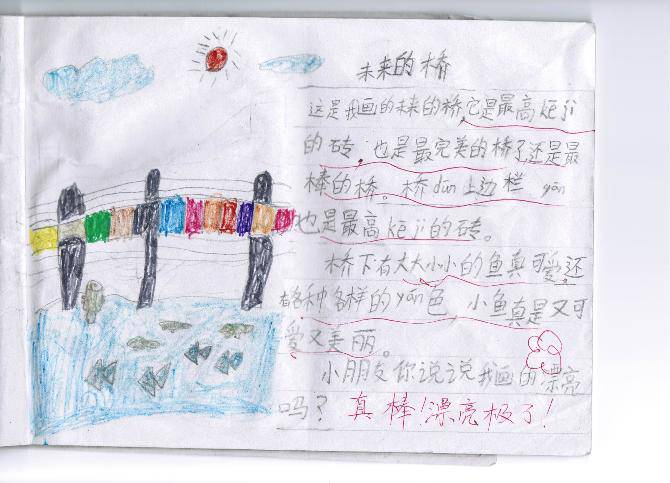 未来的桥
这是我画的未来的桥,它是最高kē jì
的砖,也是最完美的桥了还是最
棒的桥。桥dūn上边栏yán
也是最高kē jì的砖。
桥下有大大小小的鱼真可爱,还
有各种各样的yán色,小鱼真是又可
爱又美丽。
小朋友你说说我画的漂亮
吗?真棒!漂亮极了!